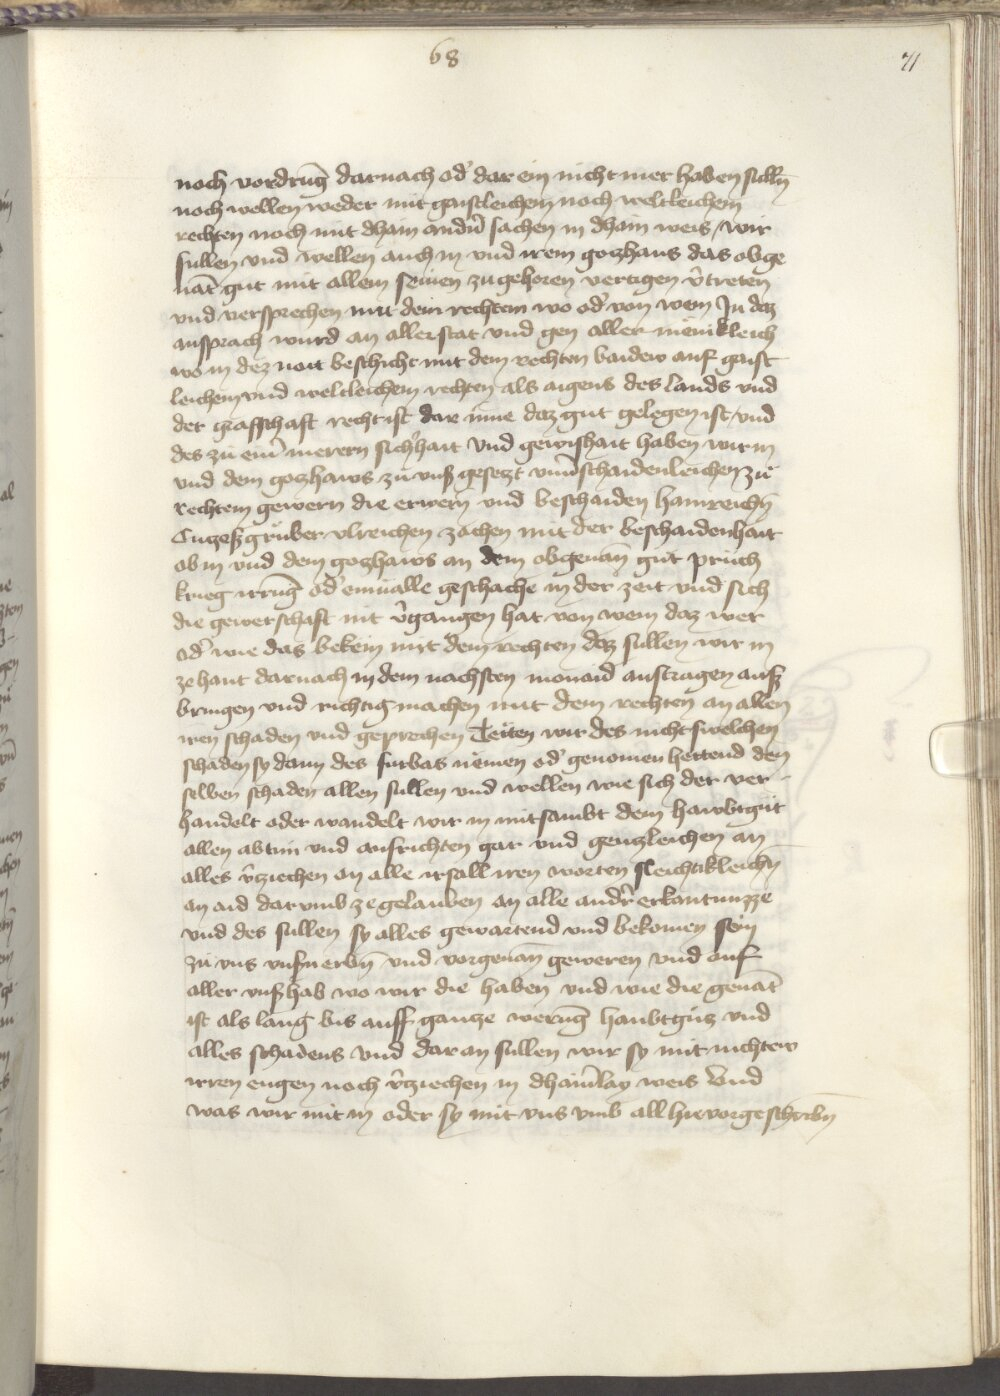 68
71
noch vordrūg darnach od' dar ein nicht mer haben sullñ
noch wellen weder mit gaistleichem noch weltleichem
rechten noch mit dhain andñ sachen in dhain weis / wir
sullen vnd wellen auch in vnd irem gotzhaus das obge
nāt gut mit allem seinen zugehoren vertigen v̄treten
vnd versprechen mit dem rechtem wo od' von wem In daz
ansprach wurd an aller stat vnd gen aller menikleich
wo in dez nott beschicht mit dem rechten baidew auf gaist
leichem vnd weltleichem rechten als aigens des lands vnd
der grafschaft recht ist dar inne daz gut gelegen ist / vnd
des zu ein' merern sich'hait vnd gewishait haben wir in
vnd dem gotzhaws zu vns gesetzt vnu'schaidenleichen zu
rechtem gewern die erwern vnd beschaiden hainreichñ
vlreichen zachen mit der beschaidenhait
ob in vnd dem gotzhaws an dem obgenan gut prüch
krieg irrūg od' einualle geschache in der zeit vnd sich
die gewerschaft nit v̄gangen hat von wem daz wer
od' wie das bekem mit dem rechten daz sullen wir in
ze hant darnach in dem nachsten monaid austragen ausz
bringen vnd richtig machen mit dem rechten an allen
iren schaden vnd geprechen Teiten wir des nicht swelchen
schaden sy dann des furbas nemen od' genomen hettend den
selben schaden allen sullen vnd wellen wie sich der ver
handelt oder wandelt wir in mitsambt dem hawbtgut
allen abtun vnd ausrichten gar vnd genczleichen an
alles v̄ziechen an alle irsall iren worten sleichtikleichñ
an aid darvmb ze gelauben an alle and'r erkantnuzze
vnd des sullen sy alles gewartend vnd bekomen sein
zu vns vnsñ erbñ vnd vorgenan geweren vnd auf
aller vnser hab wo wir die haben vnd wie die genāt
ist als lang bis auff gantze werūg haubtgutz vnd
alles schadens vnd daran sullen wir sy mit nichtew
irren engen noch v̄ziechen in dhainlay weis Vnd
was wir mit in oder sy mit vns vmb all hievorgeschribñ